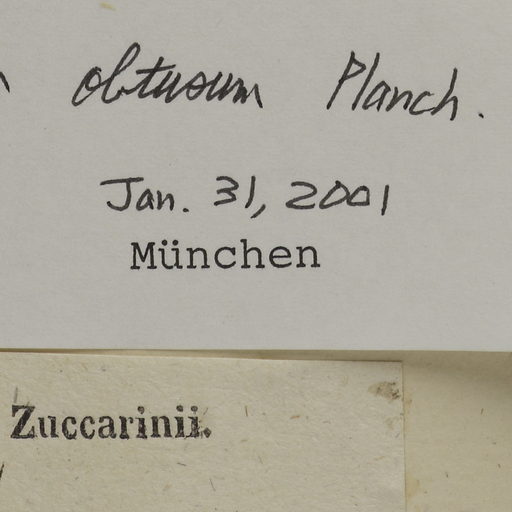 obtusum Planch.
Jan. 31, 2001
München
Zuccarinii.